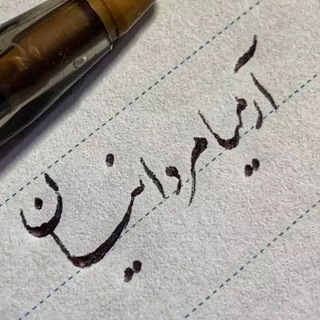 آرمیا مردانیان